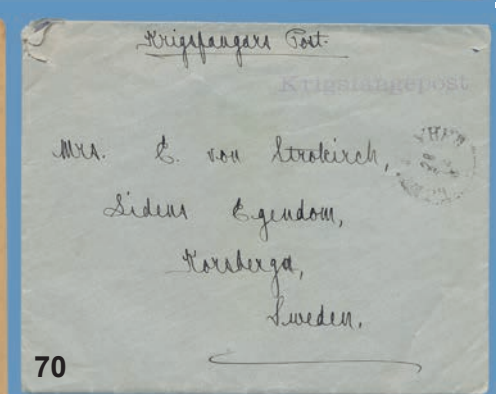 Krigsfangars Post.
Krigsfangepost
Mrs. E. von Strokirch,
Sidens Egendom,
Korsberga,
Sweden.
70